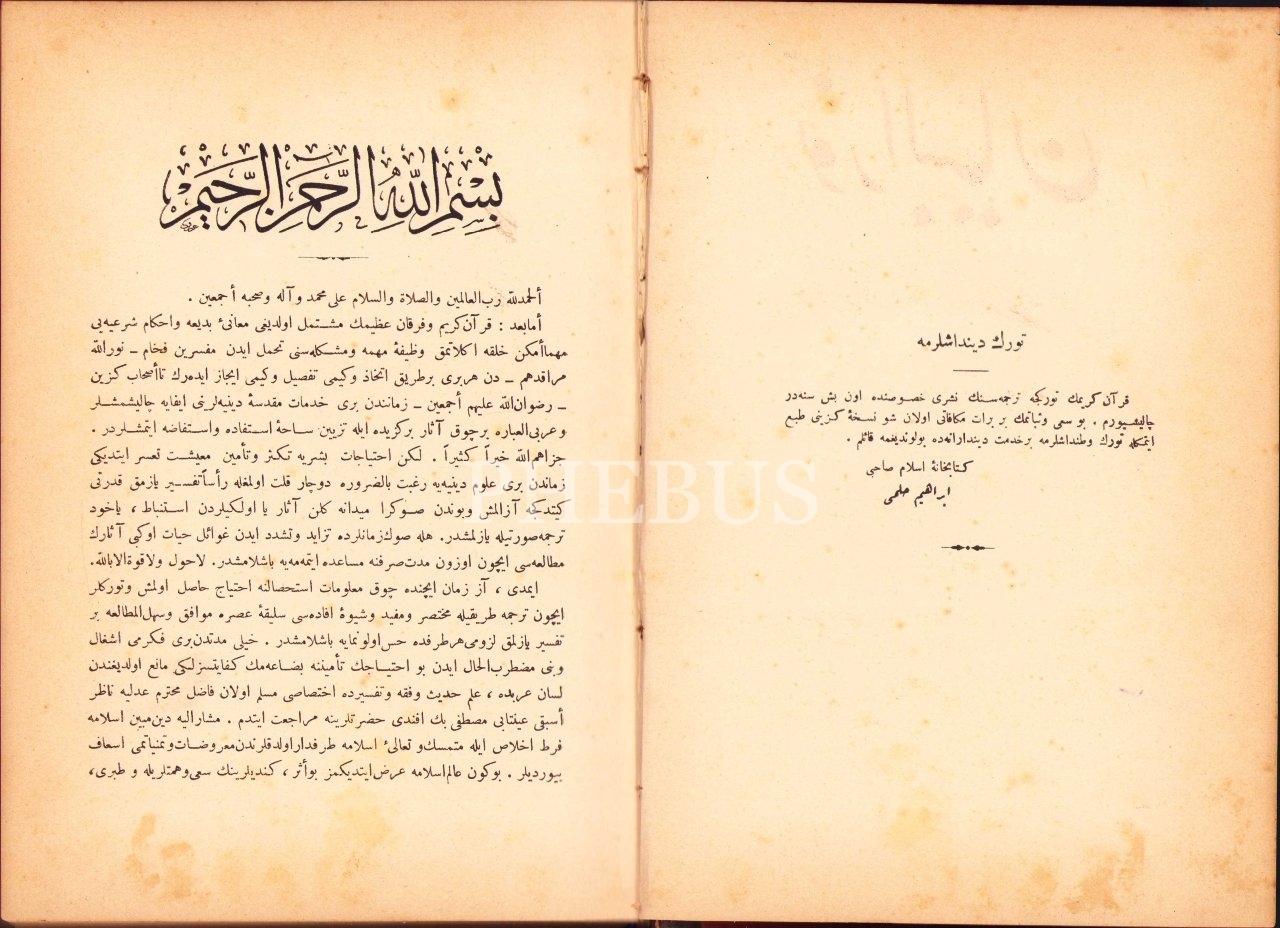 تورك دينداشلرمه
قرآن كريمك توركجه ترجمه‌سنك نشرى خصوصنده اون بش سنه‌در
چاليشيورم . بو سعى وثباتمك بر برات مكافاتى اولان شو نسخهٔ كزينى طبع
ايتمكله تورك وطنداشلرمه برخدمت ديندارانه‌ده بولونديغمه قائلم .
كتابخانهٔ اسلام صاحبى
ابراهيم حلمى
بِسْمِ اللهِ الرَّحْمَنِ الرَّحِيمِ
ألحمدلله رب‌العالمين والصلاة والسلام على محمد وآله وصحبه أجمعين .
أمابعد : قرآن‌كريم وفرقان عظيمك مشتمل اولديغى معانئ بديعه واحكام شرعيه‌يى
مهماأمكن خلقه اكلاتمق وظيفهٔ مهمه ومشكله‌سنى تحمل ايدن مفسرين فخام ــ نورالله
مراقدهم ــ دن هربرى برطريق اتخاذ وكيمى تفصيل وكيمى ايجاز ايده‌رك تاأصحاب كزين
ــ رضوان‌الله عليهم أجمعين ــ زمانندن برى خدمات مقدسهٔ دينيه‌لرينى ايفايه چاليشمشلر
وعربى‌العباره برچوق آثار بركزيده ايله تزيين ساحهٔ استفاده واستفاضه ايتمشلردر .
جزاهم‌الله خيراً كثيراً . لكن احتياجات بشريه تكثر وتأمين معيشت تعسر ايتديكى
زماندن برى علوم دينيه‌يه رغبت بالضروره دوچار قلت اولمغله رأساًتفسير يازمق قدرتى
كيتدكجه آزالمش وبوندن صوكرا ميدانه كلن آثار يا اولكيلردن استنباط ، ياخود
ترجمه‌صورتيله يازلمشدر. هله صوك‌زمانلرده تزايد وتشدد ايدن غوائل حيات اوكبى آثارك
مطالعه‌سى ايچون اوزون مدت‌صرفنه مساعده ايتمه‌مه‌يه باشلامشدر. لاحول ولاقوةالابالله.
ايمدى ، آز زمان ايچنده چوق معلومات استحصالنه احتياج حاصل اولمش وتوركلر
ايچون ترجمه طريقيله مختصر ومفيد وشيوهٔ افاده‌سى سليقهٔ عصره موافق وسهل‌المطالعه بر
تفسير يازلمق لزومى‌هرطرفده حس‌اولونمايه باشلامشدر . خيلى مدتدن‌برى فكرمى اشغال
وبنى مضطرب‌الحال ايدن بو احتياجك تأميننه بضاعه‌مك كفايتسزلكى مانع اولديغندن
لسان عربده ، علم حديث وفقه وتفسيرده اختصاصى مسلم اولان فاضل محترم عدليه ناظر
أسبقى عينتابى مصطفى بك افندى حضرتلرينه مراجعت ايتدم . مشاراليه دين‌مبين اسلامه
فرط اخلاص ايله متمسك‌و تعالئ اسلامه طرفداراولدقلرندن‌معروضات‌وتمنياتمى اسعاف
بيورديلر . بوكون عالم‌اسلامه عرض‌ايتديكمز بوأثر ، كنديلرينك سعى‌وهمتلريله و طبرى،
PHEBUS